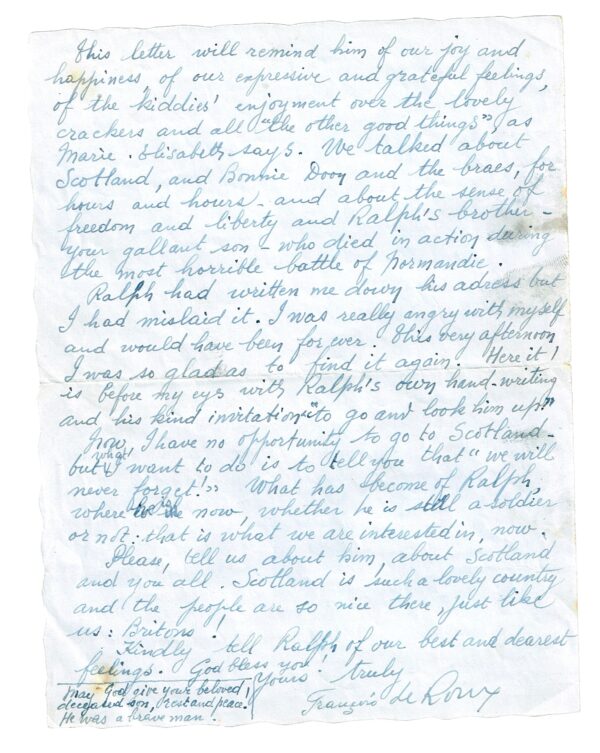 This letter will remind him of our joy and
happiness, of our expressive and grateful feelings,
of the kiddies' enjoyment over the lovely
crackers and all "the other good things", as
Marie. Elisabeth says. We talked about
Scotland, and Bonnie Doon and the braes, for
hours and hours - and about the sense of
freedom and liberty and Ralph's brother -
your gallant son - who died in action during
the most horrible battle of Normandie.
Ralph had written me down his adress but
I had mislaid it. I was really angry with myself
and would have been for ever. This very afternoon
I was so glad as to find it again. Here it
is before my eys with Ralph's own hand-writing
and his kind invitation "to go and look him up!"
Now, I have no opportunity to go to Scotland -
but what I want to do is to tell you that "we will
never forget!" What has become of Ralph,
where he is now, whether he is still a soldier
or not: that is what we are interested in, now.
Please, tell us about him, about Scotland
and you all. Scotland is such a lovely country
and the people are so nice there, just like
us: Britons!
Kindly tell Ralph of our best and dearest
feelings. God bless you!
Yours truly
François de Roux
May God give your beloved,
deceased son, Rest and peace.
He was a brave man!